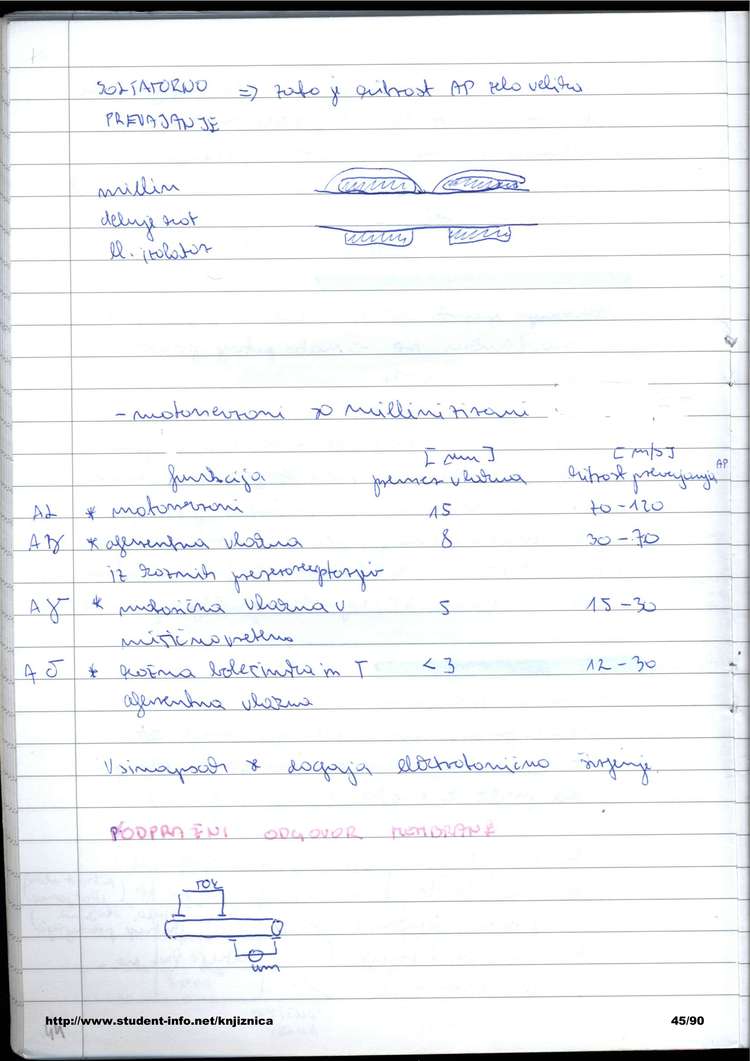 SOLTATORNO => zato je hitrost AP zelo velika
PREVAJANJE
millin
deluje kot
el. izolator
- motonevroni so millinizirani
[μm] [m/s]
funkcija premer vlakna hitrost prevajanja AP
Aα * motonevroni 15 70-120
Aβ * aferentna vlakna 8 30-70
iz kožnih presoreceptorjev
Aγ * motorična vlakna v 5 15-30
mišično vreteno
Aδ * kožna bolečinska in T <3 12-30
aferentna vlakna
V sinapsah se dogaja elektrotonično širjenje.
PODPRAŽNI ODGOVOR MEMBRANE
TOK
http://www.student-info.net/knjiznica 45/90
44